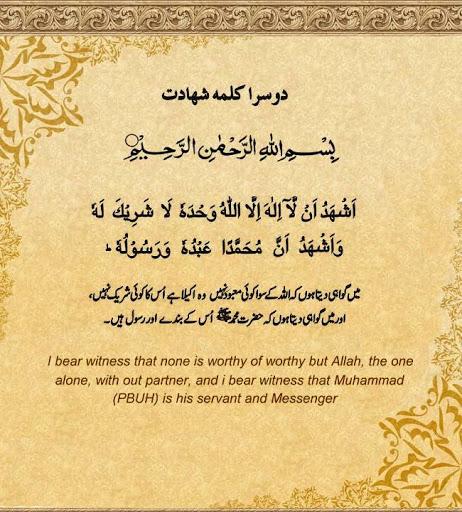 دوسرا کلمہ شہادت
بِسْمِ اللهِ الرَّحْمٰنِ الرَّحِيْمِ
اَشْهَدُ اَنْ لَّآ اِلٰهَ اِلَّا اللّٰهُ وَحْدَهٗ لَا شَرِيْكَ لَهٗ
وَاَشْهَدُ اَنَّ مُحَمَّدًا عَبْدُهٗ وَرَسُوْلُهٗ ؕ
میں گواہی دیتا ہوں کہ اللہ کے سوا کوئی معبود نہیں وہ اکیلا ہے اُس کا کوئی شریک نہیں،
اور میں گواہی دیتا ہوں کہ حضرت محمد ﷺ اُس کے بندے اور رسول ہیں۔
I bear witness that none is worthy of worthy but Allah, the one
alone, with out partner, and i bear witness that Muhammad
(PBUH) is his servant and Messenger